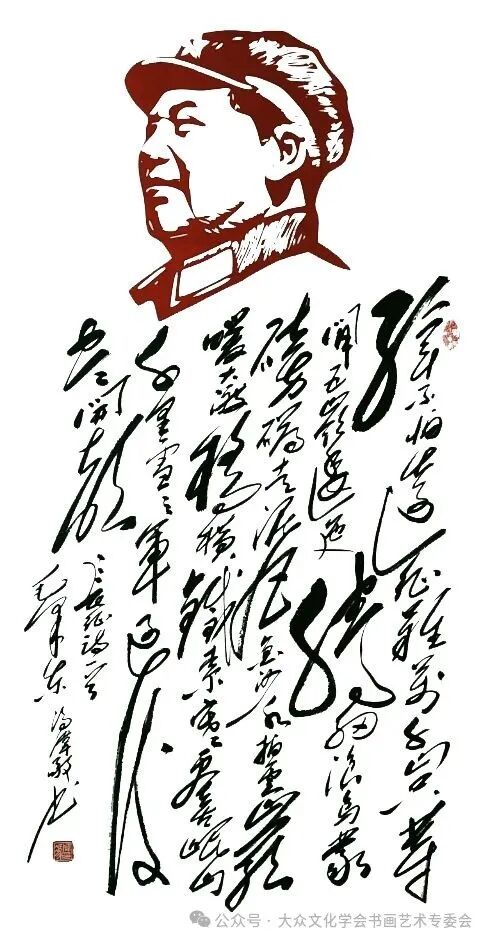 红军不怕远征難萬水千山只等
闲五嶺逶迤腾细浪乌蒙
磅礴走泥丸金沙水拍雲崖
暖大渡橋横铁索寒更喜岷山
千里雪三軍过后
尽開颜
长征诗一首
毛泽东 书
公众号 · 大众文化学会书画艺术专委会